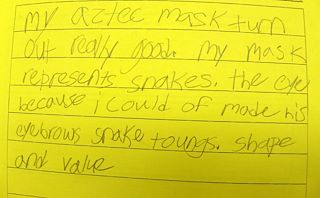 my aztec mask turn
out really good. my mask
represents snakes. the eye
because i could of made his
eyebrows snake toungs. shape
and value